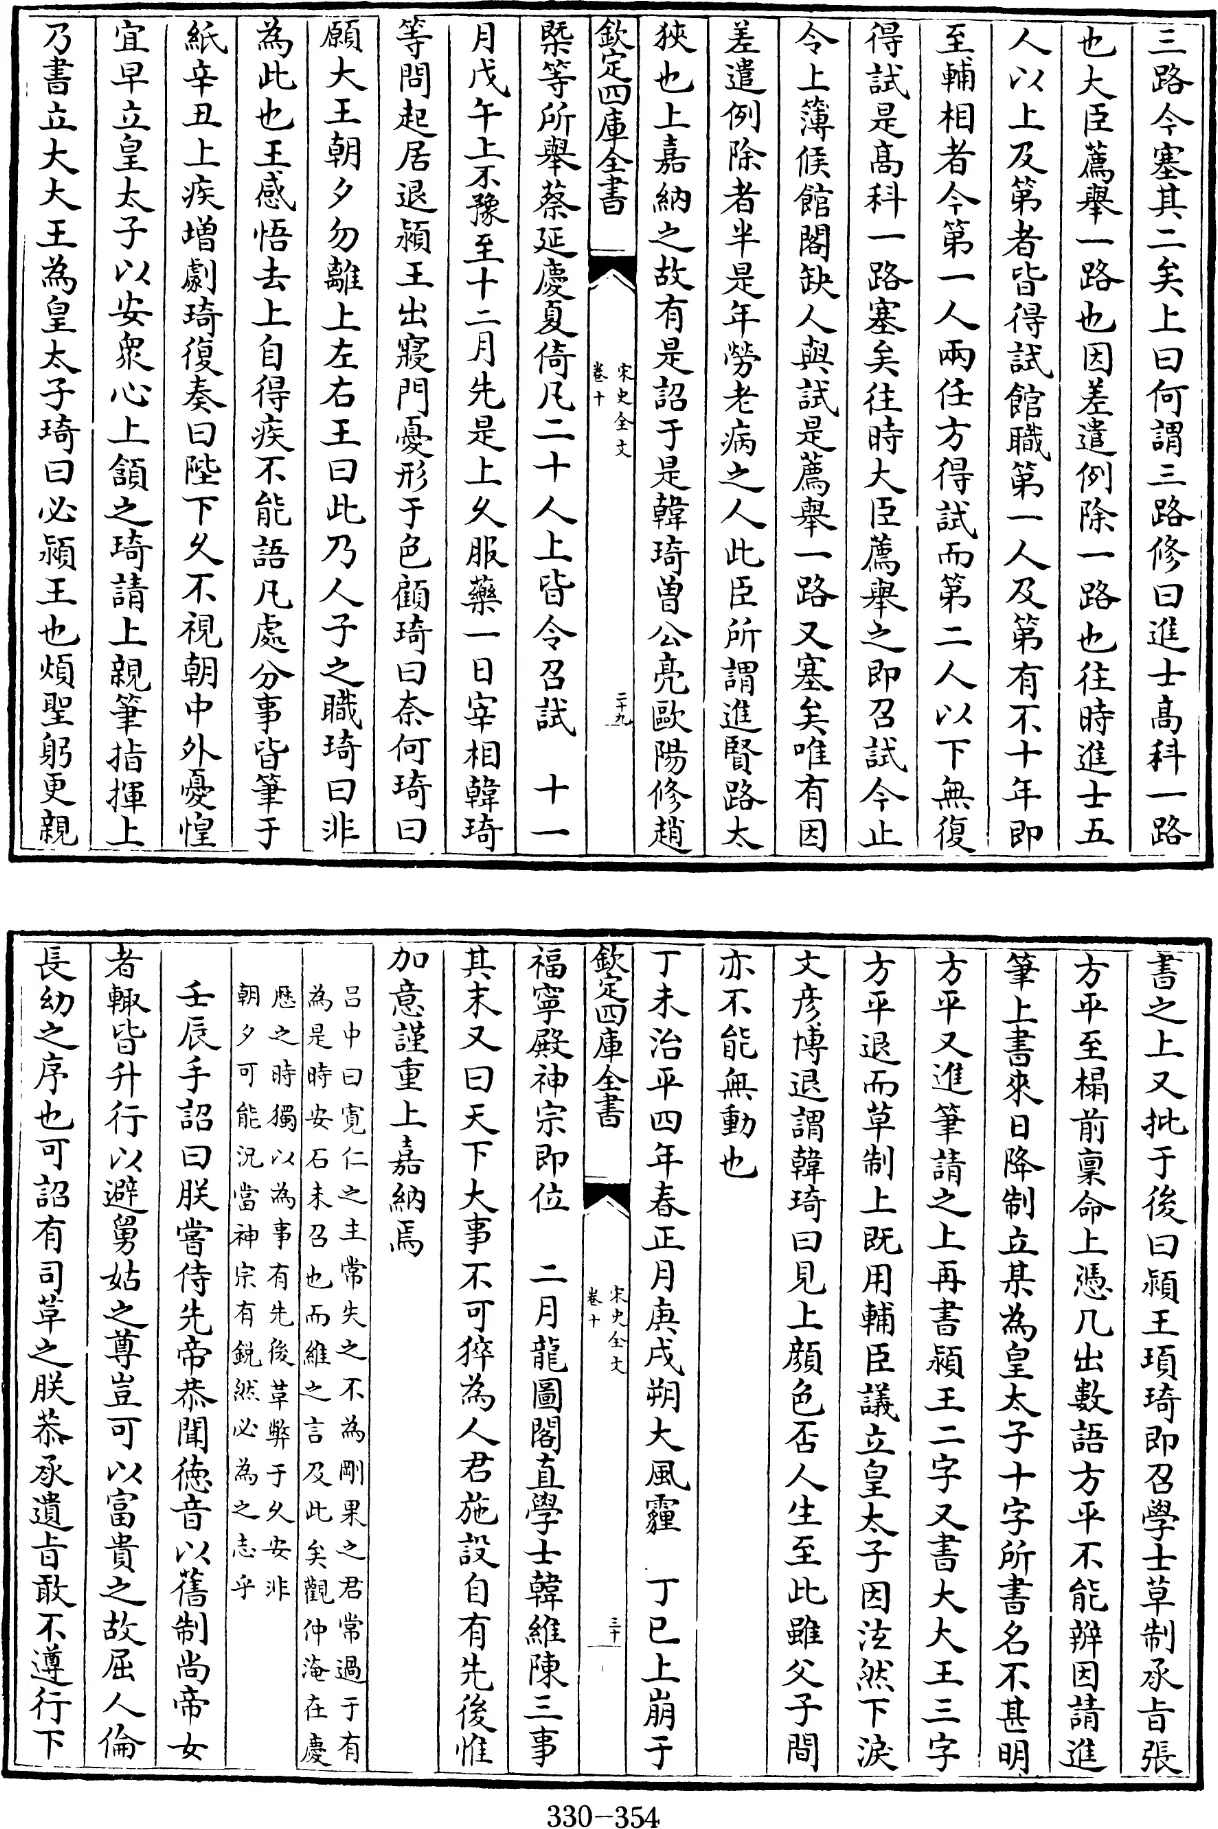 三路今塞其二矣上曰何謂三路修曰進士髙科一路
也大臣薦舉一路也因差遣例除一路也往時進士五
人以上及第者皆得試館職第一人及第有不十年即
至輔相者今第一人兩任方得試而第二人以下無復
得試是髙科一路塞矣往時大臣薦舉之即召試今止
令上簿候館閣缺人與試是薦舉一路又塞矣唯有因
差遣例除者半是年勞老病之人此臣所謂進賢路太
狹也上嘉納之故有是詔于是韓琦曽公亮歐陽修趙
欽定四庫全書
宋史全文
卷十
二十九
槩等所舉蔡延慶夏倚凡二十人上皆令召試　十一
月戊午上不豫至十二月先是上乆服藥一日宰相韓琦
等問起居退潁王出寢門憂形于色顧琦曰奈何琦曰
願大王朝夕勿離上左右王曰此乃人子之職琦曰非
為此也王感悟去上自得疾不能語凡處分事皆筆于
紙辛丑上疾增劇琦復奏曰陛下乆不視朝中外憂惶
宜早立皇太子以安衆心上頷之琦請上親筆指揮上
乃書立大大王為皇太子琦曰必潁王也煩聖躬更親
書之上又批于後曰潁王頊琦即召學士草制承旨張
方平至榻前禀命上憑几出數語方平不能辨因請進
筆上書來日降制立某為皇太子十字所書名不甚明
方平又進筆請之上再書潁王二字又書大大王三字
方平退而草制上既用輔臣議立皇太子因泫然下淚
文彦博退謂韓琦曰見上顔色否人生至此雖父子間
亦不能無動也
丁未治平四年春正月庚戌朔大風霾　丁巳上崩于
欽定四庫全書
宋史全文
卷十
三十
福寧殿神宗即位　二月龍圖閣直學士韓維陳三事
其末又曰天下大事不可猝為人君施設自有先後惟
加意謹重上嘉納焉
吕中曰寛仁之主常失之不為剛果之君常過于有
為是時安石未召也而維之言及此矣觀仲淹在慶
厯之時獨以為事有先後革弊于乆安非
朝夕可能況當神宗有銳然必為之志乎
壬辰手詔曰朕嘗侍先帝恭聞徳音以舊制尚帝女
者輙皆升行以避舅姑之尊豈可以富貴之故屈人倫
長幼之序也可詔有司革之朕恭承遺旨敢不遵行下
330-354